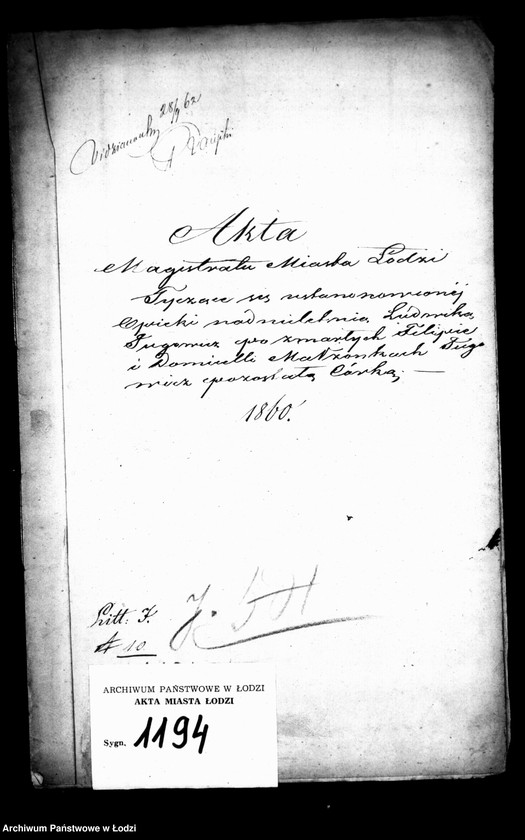 Widziano 28/9 62
Akta
Magistratu Miasta Łodzi
Tyczące się ustanowionéj
Opieki nad nieletnią Ludwiką
po zmarłych Filipie
i Domicelli Małżonkach
wicz pozostałą Córką. —
1860.
Litt:
№ 10
ARCHIWUM PAŃSTWOWE W ŁODZI
AKTA MIASTA ŁODZI
Sygn. 1194
Archiwum Państwowe w Łodzi